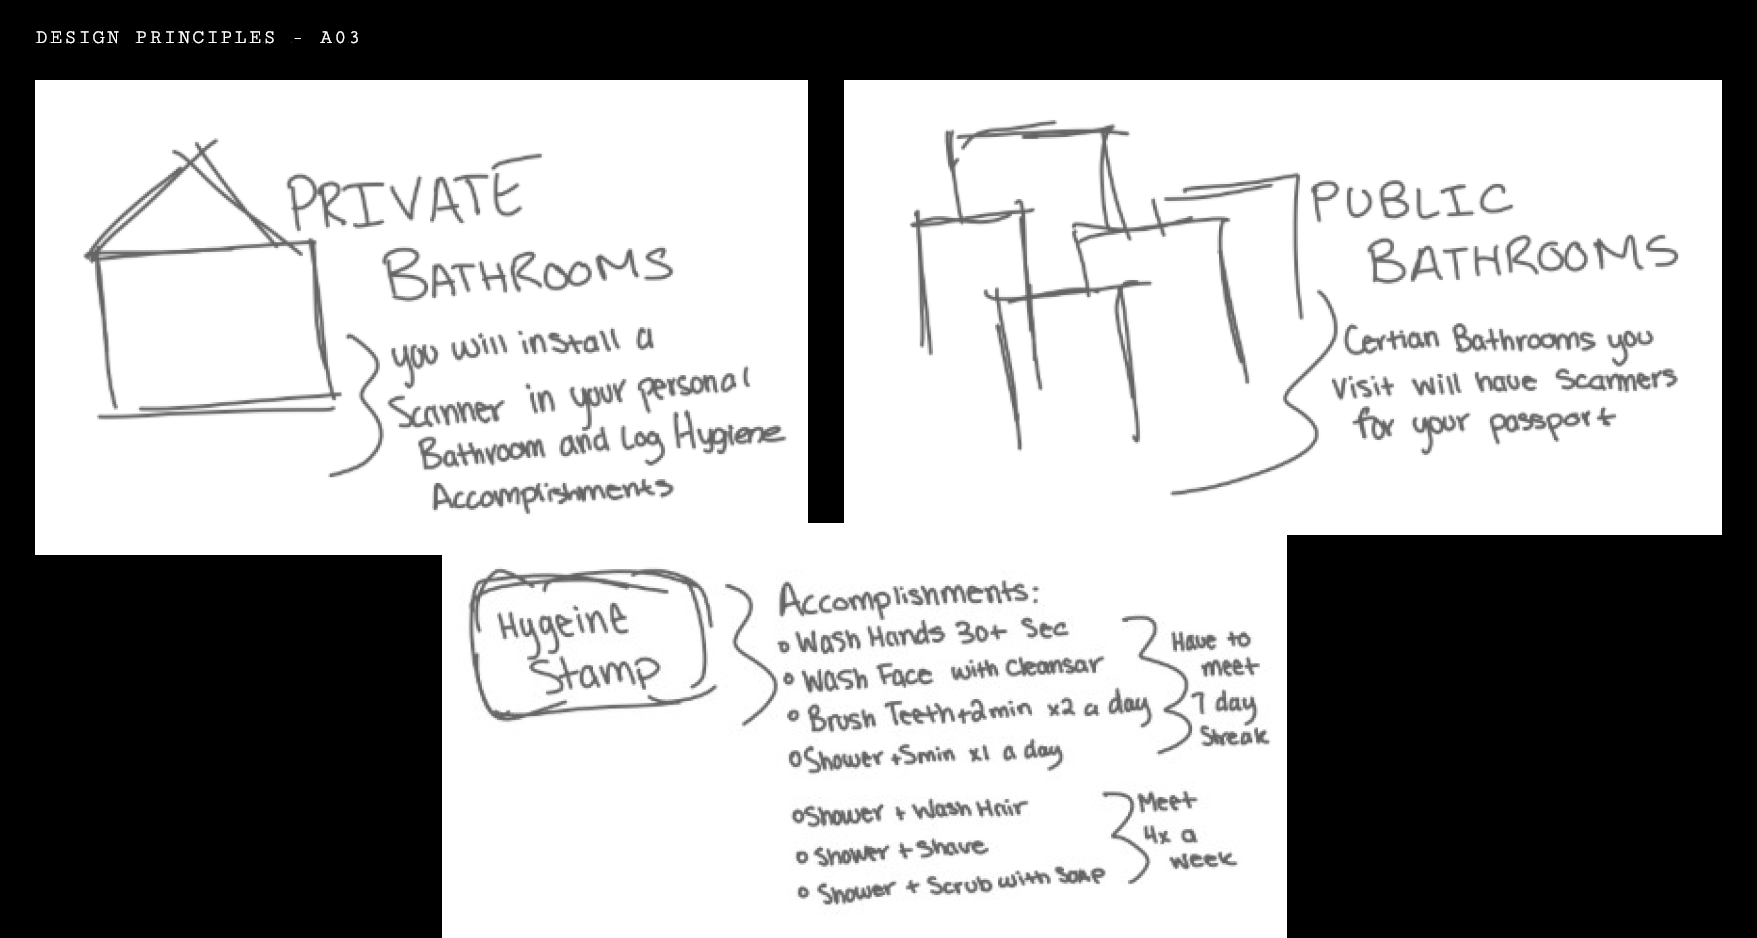 DESIGN PRINCIPLES - A03
PRIVATE
BATHROOMS
you will install a
Scanner in your personal
Bathroom and Log Hygiene
Accomplishments
PUBLIC
BATHROOMS
Certian Bathrooms you
Visit will have Scanners
for your passport
Hygeine
Stamp
Accomplishments:
Wash Hands 30+ Sec
Wash Face with Cleansar
Brush Teeth+2min x2 a day
Shower +5min x1 a day
Have to
meet
7 day
Streak
Shower + Wash Hair
Shower + Shave
Shower + Scrub with Soap
Meet
4x a
week